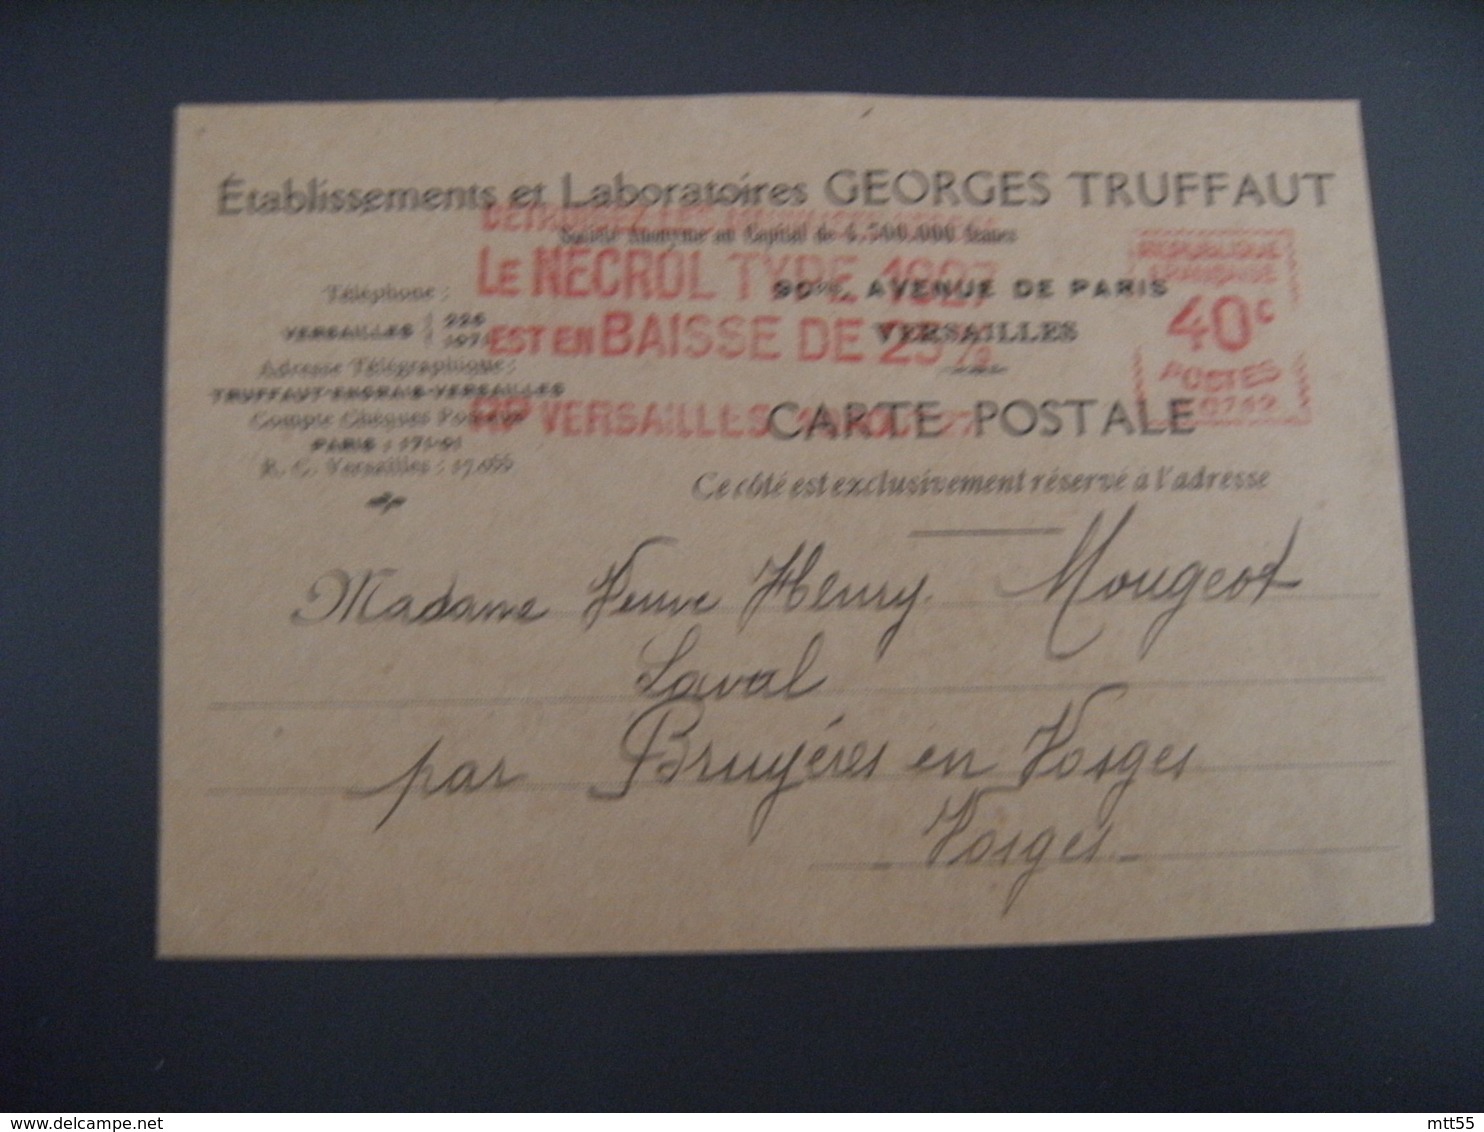 Établissements et Laboratoires GEORGES TRUFFAUT
Société Anonyme au Capital de 4.500.000 francs
90 bis, AVENUE DE PARIS
VERSAILLES
Téléphone :
VERSAILLES
Adresse Télégraphique :
TRUFFAUT-ENGRAIS-VERSAILLES
Compte Chèques Postaux
PARIS : 171-01
R. C. Versailles :
LE NECROL TYPE
EST EN BAISSE DE 25%
VERSAILLES
REPUBLIQUE
FRANÇAISE
40c
POSTES
CARTE POSTALE
Ce côté est exclusivement réservé à l'adresse
Madame Veuve Henry Mougeot
Laval
par Bruyères en Vosges
Vosges
mtt55